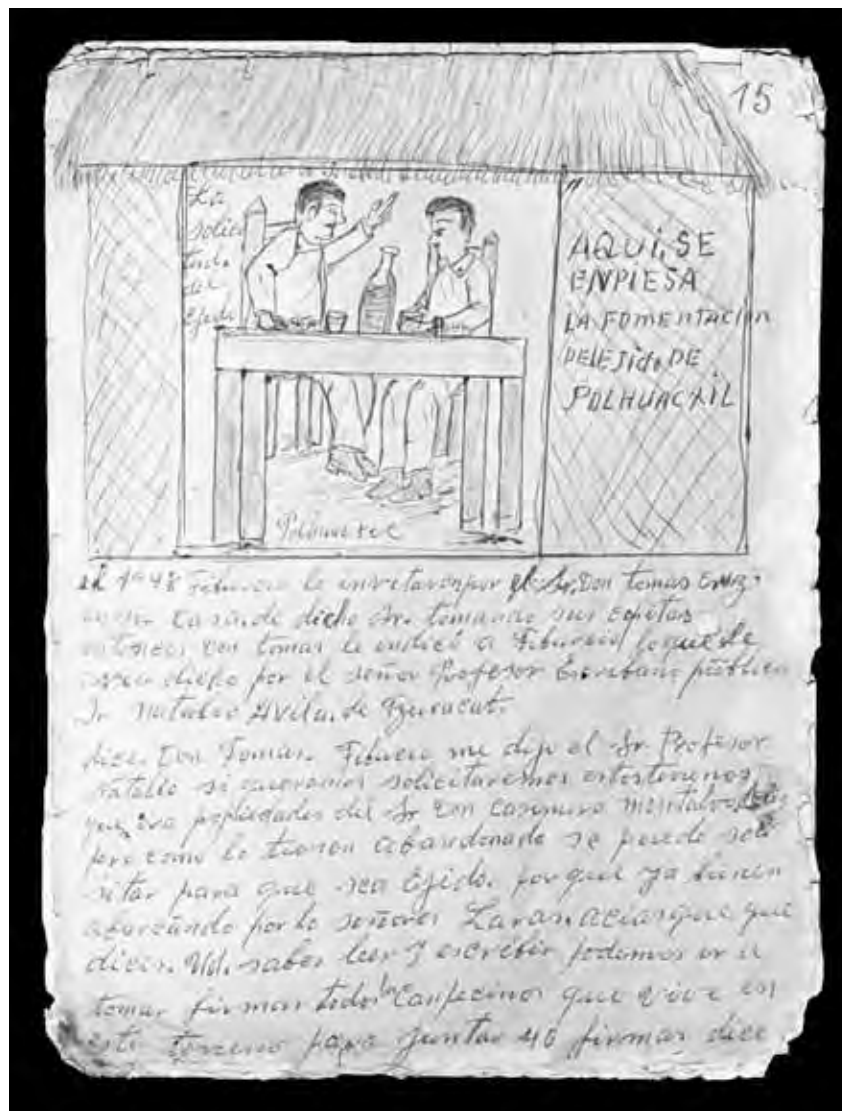 15
La
solici
tud.
del
Ejido
AQUI, SE
ENPIESA
LA FOMENTACION
DEL EJIDO, DE
POLHUACXIL
Polhuacxil
el 1948 Tiburcio lo invitaron por el Sr. Don tomas Cruz.
en casa de dicho Sr. tomando sus copitas
entonces Don tomas le indicó a Tiburcio, lo que le
dicho por el señor Profesor Escribano público
Sr. Natalio Avila. de
dice. Don Tomas. Tiburcio me dijo el Sr. Profesor
natalio si queremos solicitaremos estos terrenos,
que, era propiedades del Sr Don Casimiro Montalvo
pero como lo tienen abandonado se puede soli
sitar para que sea Ejido. por que ya bienen
abarcando por lo señores Laras. que
dices. Ud. saber leer y escribir podemos ir a
tomar firmar todos los Canpecinos que vive en
este terreno para juntar 40 firmar dice